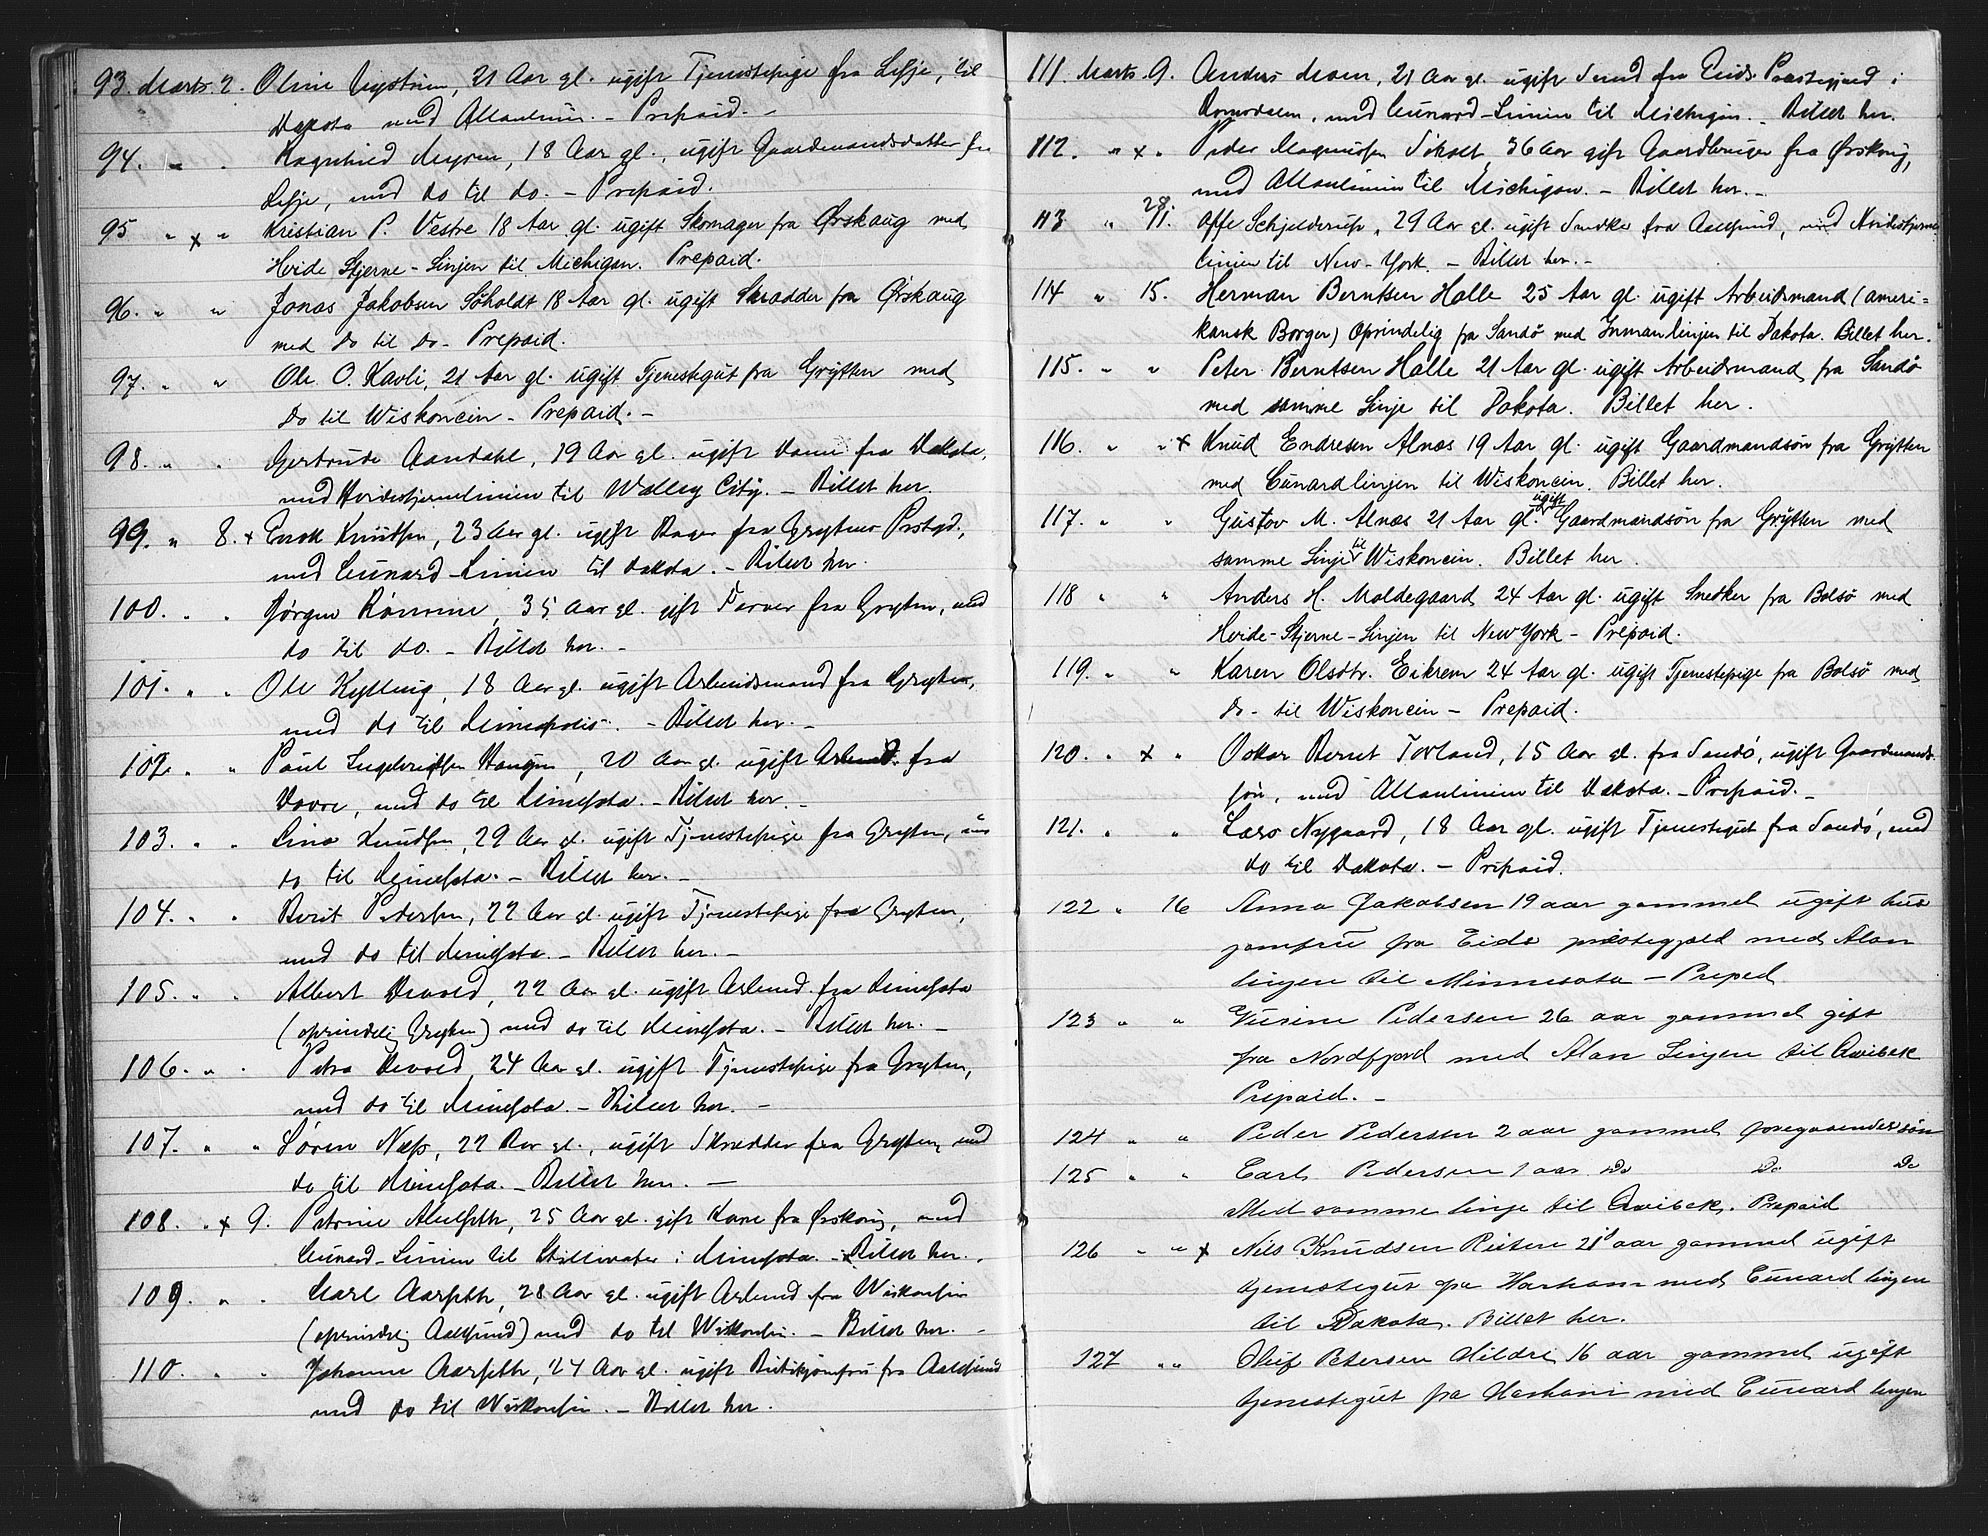 93. Marts. 2. Oline Nystuen, 21 Aar gl. ugift Tjenestepige fra Lesje, til
Dakota med Allanlinien. - Prepaid. -
94. " " Ragnhild Myren, 18 Aar gl., ugift Gaardmandsdatter fra
Lesje, med do til do. - Prepaid.
95 " x " Kristian P. Vestre 18 Aar gl. ugift Skomager fra Ørskaug med
Hvide Stjerne-Linjen til Michigan. Prepaid.
96. " " Jonas Jakobsen Søholdt 18 Aar gl. ugift Skrædder fra Ørskaug
med do til do - Prepaid.
97. " " Ole O. Kavli, 21 Aar gl. ugift Tjenestegut fra Grytten med
do til Wiskoncin - Prepaid. -
98. " " Gertrude Aandahl, 19 Aar gl. ugift Dame fra Dakota,
med Hvidestjernelinien til Walley City. - Billet her.
99. " 8. x Enok Knutsen, 23 Aar gl. ugift Bager fra Grytens Prstgd.,
med Cunard-Linien til Dakota. - Billet her.
100. " " Jørgen Rønning, 35 Aar gl. gift Farver fra Gryten, med
do til do. - Billet her. -
101. " " Ole Kylling, 18 Aar gl. ugift Arbeidsmand fra Gryten,
med do til Mineapolis. - Billet her. -
102. " " Paul Ingebrigtsen Haugen, 20 Aar gl. ugift Arbmd. fra
Dovre, med do til Minesota. - Billet her. -
103. " " Lina Knudsen, 29 Aar gl. ugift Tjenestepige fra Gryten, med
do til Minesota. - Billet her. -
104. " " Berit Pedersen, 22 Aar gl. ugift Tjenestepige fra Gryten,
med do til Minesota. - Billet her. -
105. " " Albert Devold, 22 Aar gl. ugift Arbmd. fra Minesota
(oprindelig Gryten) med do til Minesota. - Billet her. -
106. " " Petra Devold, 24 Aar gl. ugift Tjenestepige fra Gryten,
med do til Minesota. - Billet her. -
107. " " Søren Næss, 22 Aar gl., ugift Skrædder fra Gryten, med
do til Minesota. - Billet her. -
108. " x 9. Petrine 25 Aar gl. gift Kone fra Ørskoug, med
Cunard-Linien til Stillwater i Minesota. - Billet her.
109. " " Carl Aarseth, 28 Aar gl. ugift Arbmd fra Wiskonsin
(oprindelig Aalesund) med do til Wiskonsin. - Billet her. -
110. " " Johanne Aarseth, 24 Aar gl. ugift Butikjomfru fra Aalesund
med do til Wiskonsin. - Billet her.
111. Marts. 9. Anders Moen, 21 Aar gl. ugift Smed fra Eids Præstegjeld i
Romsdalen, med Cunard-Linien til Michigan. - Billet her.
112. " x " Peder Magnusen Søholt, 36 Aar gift Gaardbruger fra Ørskoug,
med Allanlinien til Michigan. - Billet her. -
113 " 28/11. Offe Schjelderup, 29 Aar gl. ugift Snedker fra Aalesund, med Hvidestjerne-
linien til New-York. - Billet her. -
114 " 15. Herman Berntsen Halle 25 Aar gl. ugift Arbeidsmand (ameri=
kansk Borger) Oprindelig fra Sandø med Inmanlinjen til Dakota. Billet her.
115. " " Peter Berntsen Halle 21 Aar gl. ugift Arbeidsmand fra Sandø
med samme Linje til Dakota. Billet her.
116. " " x Knud Endresen Alnæs 19 Aar gl. ugift Gaardmandsøn fra Grytten
med Cunardlinjen til Wiskoncin. Billet her.
117. " " Gustov M. Alnæs 21 Aar gl. ugift Gaardmandsøn fra Grytten med
samme Linje til Wiskoncin. Billet her.
118 " " Anders H. Moldegaard 24 Aar gl. ugift Snedker fra Bolsø med
Hvide-Stjerne-Linjen til New York - Prepaid.
119. " " Karen Olsdtr. Eikrem 24 Aar gl. ugift Tjenestepige fra Bolsø med
do - til Wiskoncin - Prepaid.
120. " x " Oskar Bernt Torland, 15 Aar gl. fra Sandø, ugift Gaardmands-
søn, med Allanlinien til Dakota. - Prepaid. -
121. " " Lars Nygaard, 18 Aar gl. ugift Tjenestegut fra Sandø, med
do til Dakota. - Prepaid.
122 " 16 Anna Jakobsen 19 aar gammel ugift hus
jomfru fra Eids præstegjeld med Alan
lingen til Minnesota - Preped.
123 " " Pedersen 26 aar gammel gift
fra Nordfjord med Alan Lingen til Qwibek
Prepaid. -
124 " " Peder Pedersen 2 aar gammel foregaaendes søn
125 " " Carl Pedersen 1 aar Do Do Do
Med samme linge til Qwibek. Prepaid
126 " " x Nils Knudsen Reiten 21 aar gammel ugift
tjenestegut fra Harham med Cunard lingen
til Dakota. Billet her.
127 " " Oluf Petersen Hildre 16 aar gammel ugift
tjenestegut fra Harham med Cunard lingen